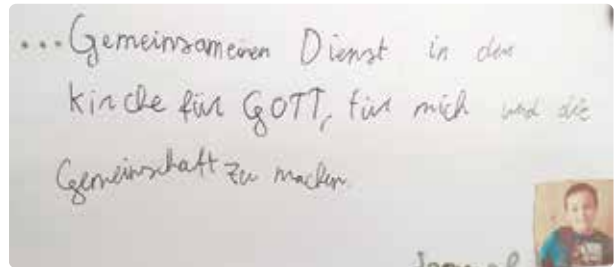 ...Gemeinsameinen Dienst in der
Kirche für GOTT, für mich und die
Gemeinschaft zu machen